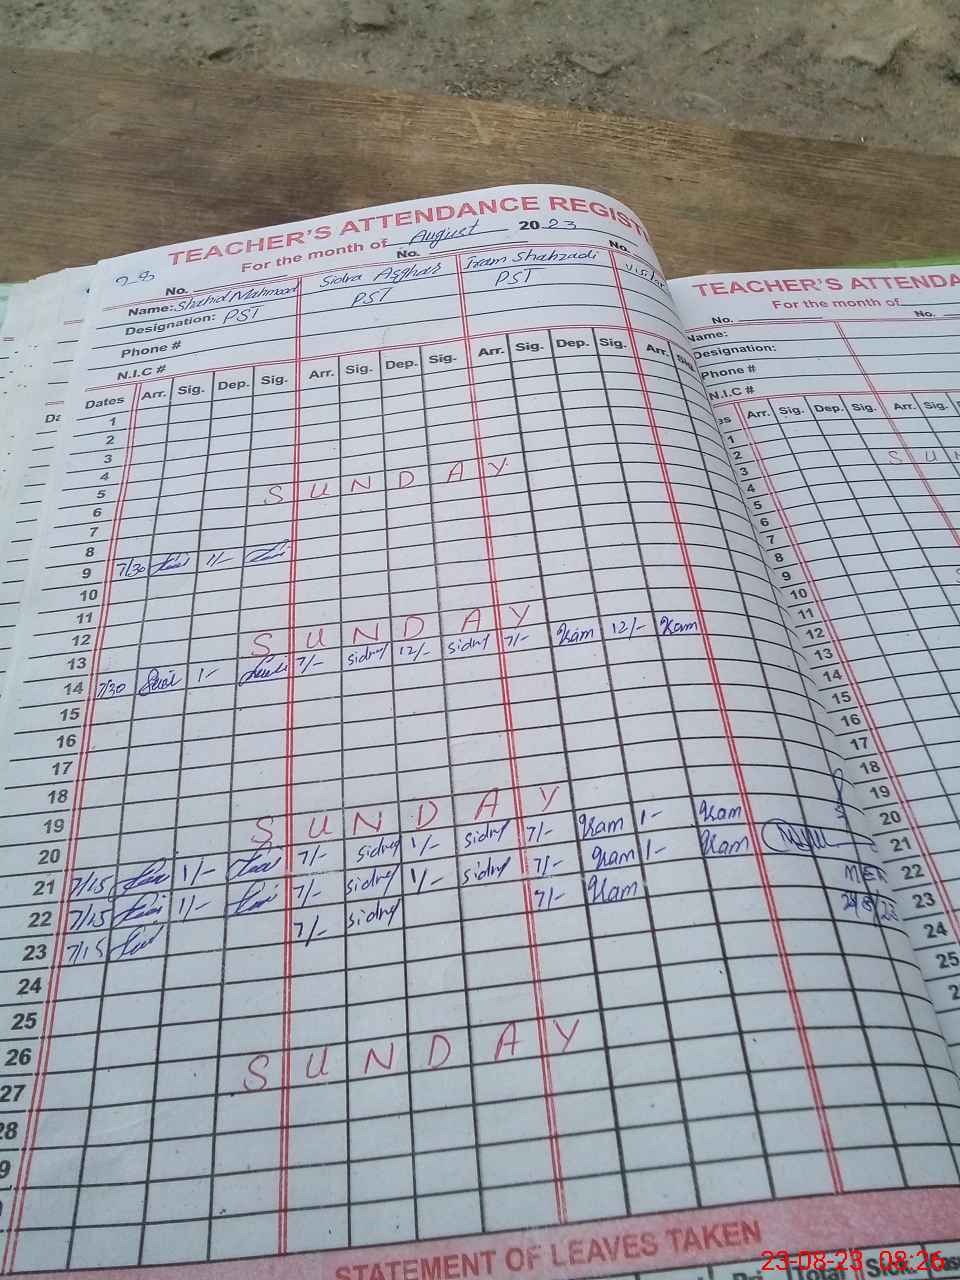 TEACHER'S ATTENDANCE REGIST
For the month of August 2023
No. No. No.
Name: Shahid Mahmood Sidra Asghar Iram Shahzadi Visitor
Designation: PST PST PST
Phone #
N.I.C #
Dates Arr. Sig. Dep. Sig. Arr. Sig. Dep. Sig. Arr. Sig. Dep. Sig. Arr. Sig.
1
2
3
4
5
SUNDAY
6
7
8
9 7/30 1/-
10
11
12
SUNDAY
13
14 7/30 1/- 7/- sidra 12/- sidra 7/- Iram 12/- Iram
15
16
17
18
19
SUNDAY
20
21 7/15 1/- 7/- sidra 1/- sidra 7/- Iram 1/- Iram
22 7/15 1/- 7/- sidra 1/- sidra 7/- Iram 1/- Iram
23 7/15 7/- sidra 7/- Iram
24
25
26
SUNDAY
27
28
9
STATEMENT OF LEAVES TAKEN
TEACHER'S ATTENDA
For the month of
No. No.
Name:
Designation:
Phone #
N.I.C #
es Arr. Sig. Dep. Sig. Arr. Sig.
1
2
3
SUN
4
5
6
7
8
9
10
11
12
13
14
15
16
17
18
19
20
21
22
23
24
25
23-08-23 08:26